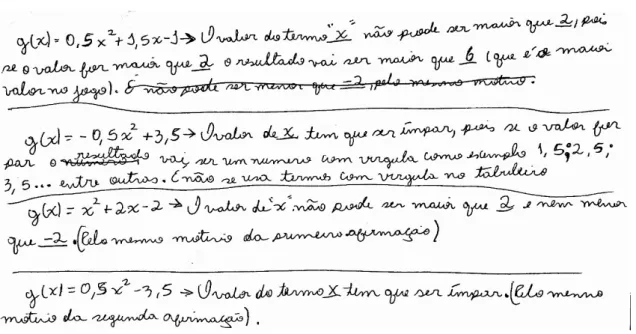 g(x) = 0,5x² + 1,5x - 1 → O valor do termo "x" não pode ser maior que 2, pois
se o valor for maior que 2 o resultado vai ser maior que 6 (que é o maior
valor no jogo). E não pode ser menor que -2, pelo mesmo motivo.
g(x) = - 0,5x² + 3,5 → O valor de x tem que ser ímpar, pois se o valor for
par o resultado vai ser um numero com virgula como exemplo 1,5; 2,5;
3,5... entre outros. E não se usa termos com virgula no tabuleiro
g(x) = x² + 2x - 2 → O valor de "x" não pode ser maior que 2 e nem menor
que -2. (Pelo mesmo motivo da primeira afirmação)
g(x) = 0,5x² - 3,5 → O valor do termo x tem que ser ímpar. (Pelo mesmo
motivo da segunda afirmação).